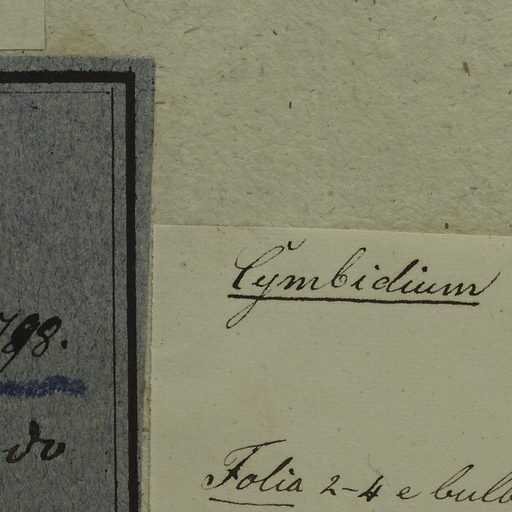 798.
do
Cymbidium
Folia 2-4 e bulb